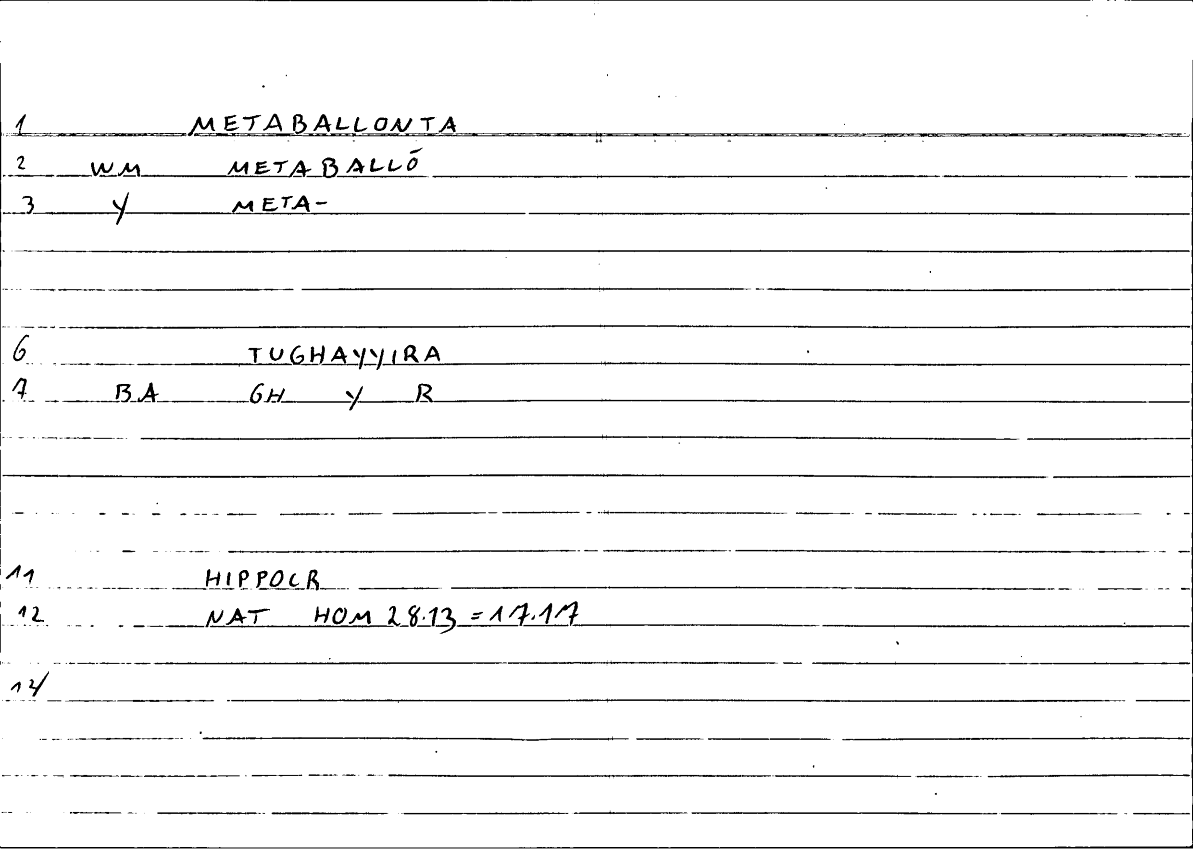 1 METABALLONTA
2 WM METABALLŌ
3 Y META-
6 TUGHAYYIRA
7 BA GH Y R
11 HIPPOCR
12 NAT HOM 28.13 = 17.17
14